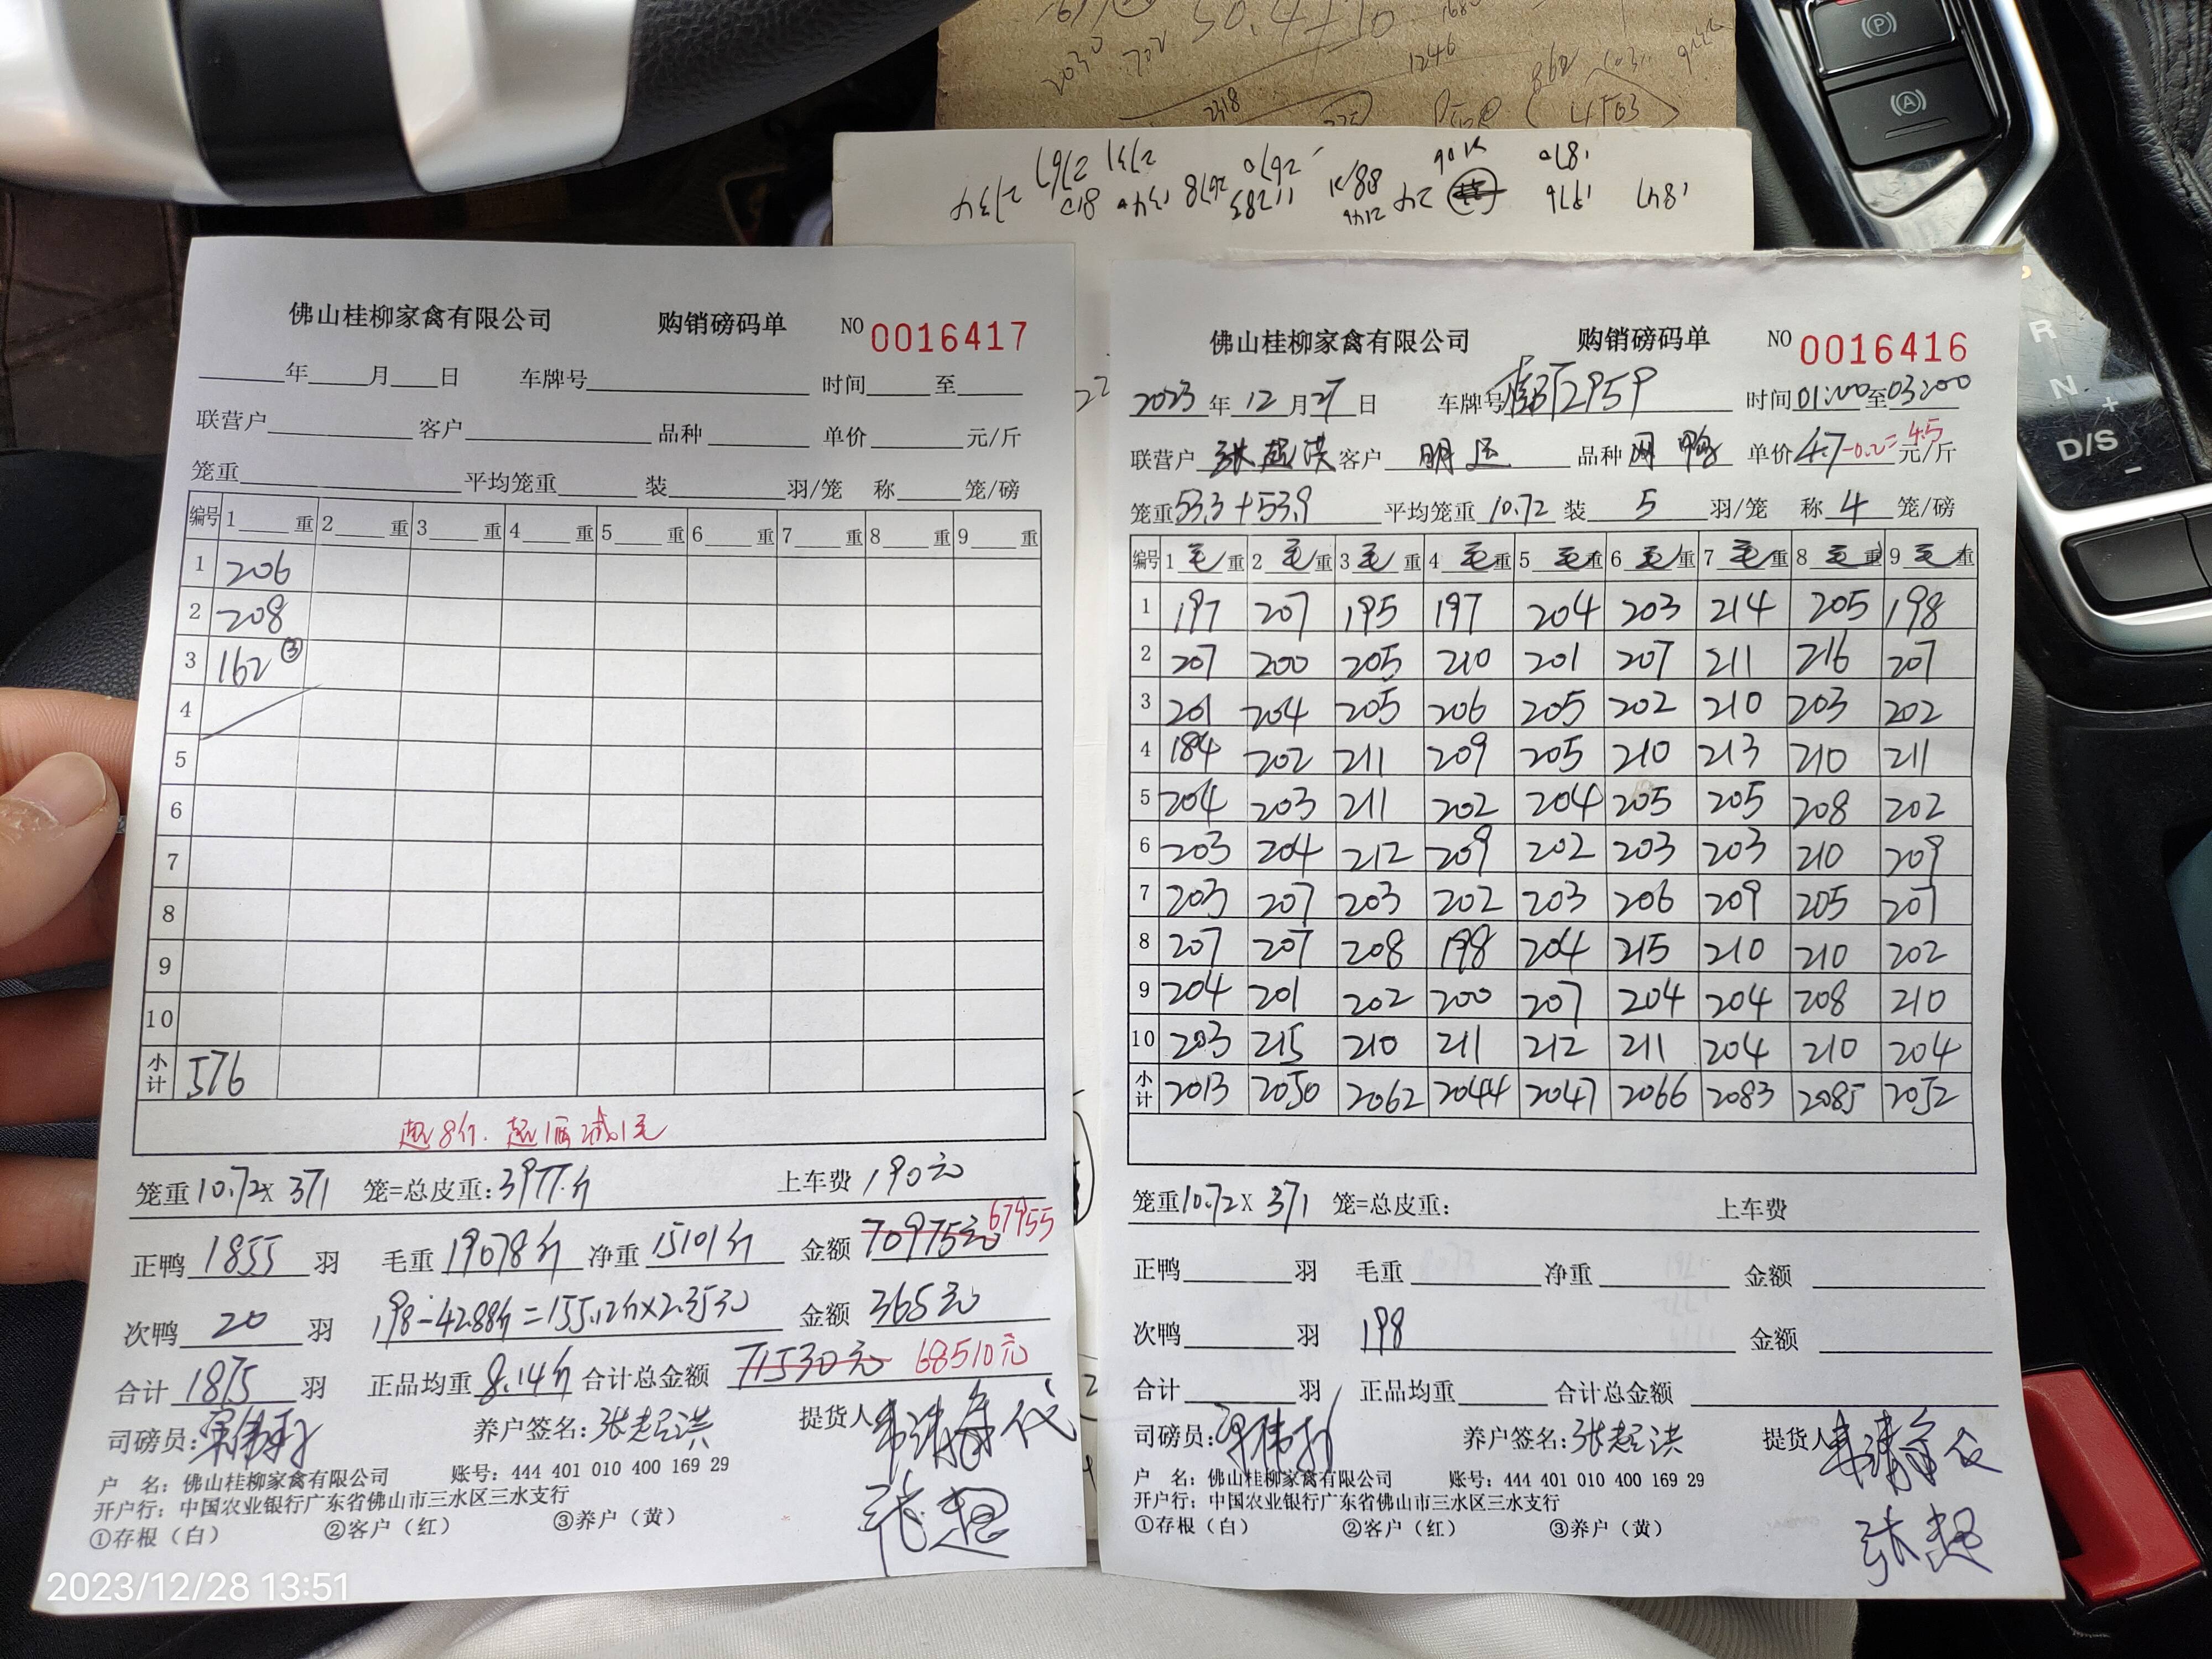 佛山桂柳家禽有限公司 购销磅码单 NO 0016417
年 月 日 车牌号 时间 至
联营户 客户 品种 单价 元/斤
笼重 平均笼重 装 羽/笼 称 笼/磅
编号 1 重 2 重 3 重 4 重 5 重 6 重 7 重 8 重 9 重
1 206
2 208
3 162 ③
4
5
6
7
8
9
10
小计 576
超8斤.超1两减1毛
笼重10.72x 371 笼=总皮重:3977.斤 上车费190元
正鸭1855羽 毛重19078斤 净重15101斤 金额70975元 67955
次鸭20羽 198-42.88斤=155.12斤x2.35元 金额365元
合计1875羽 正品均重8.14斤 合计总金额71530元 68510元
司磅员: 养户签名:张超洪 提货人 代
张超
户 名: 佛山桂柳家禽有限公司 账号: 444 401 010 400 169 29
开户行: 中国农业银行广东省佛山市三水区三水支行
①存根（白） ②客户（红） ③养户（黄）
2023/12/28 13:51
佛山桂柳家禽有限公司 购销磅码单 NO 0016416
2023年12月27日 车牌号 2959 时间01:00至03:00
联营户张超洪 客户 明 品种 鸭 单价4.7-0.2=4.5元/斤
笼重53.3+53.9 平均笼重10.72 装5羽/笼 称4笼/磅
编号 1毛重 2毛重 3毛重 4毛重 5毛重 6毛重 7毛重 8毛重 9毛重
1 197 207 195 197 204 203 214 205 198
2 207 200 205 210 201 207 211 216 207
3 201 204 205 206 205 202 210 203 202
4 184 202 211 209 205 210 213 210 211
5 204 203 211 202 204 205 205 208 202
6 203 204 212 209 202 203 203 210 209
7 203 207 203 202 203 206 209 205 207
8 207 207 208 198 204 215 210 210 202
9 204 201 202 200 207 204 204 208 210
10 203 215 210 211 212 211 204 210 204
小计 2013 2050 2062 2044 2047 2066 2083 2085 2052
笼重10.72x 371 笼=总皮重: 上车费
正鸭 羽 毛重 净重 金额
次鸭 羽 198 金额
合计 羽 正品均重 合计总金额
司磅员: 养户签名:张超洪 提货人 代
张超
户 名: 佛山桂柳家禽有限公司 账号: 444 401 010 400 169 29
开户行: 中国农业银行广东省佛山市三水区三水支行
①存根（白） ②客户（红） ③养户（黄）
R
N
+
D/S
−
P
A
1246
4503